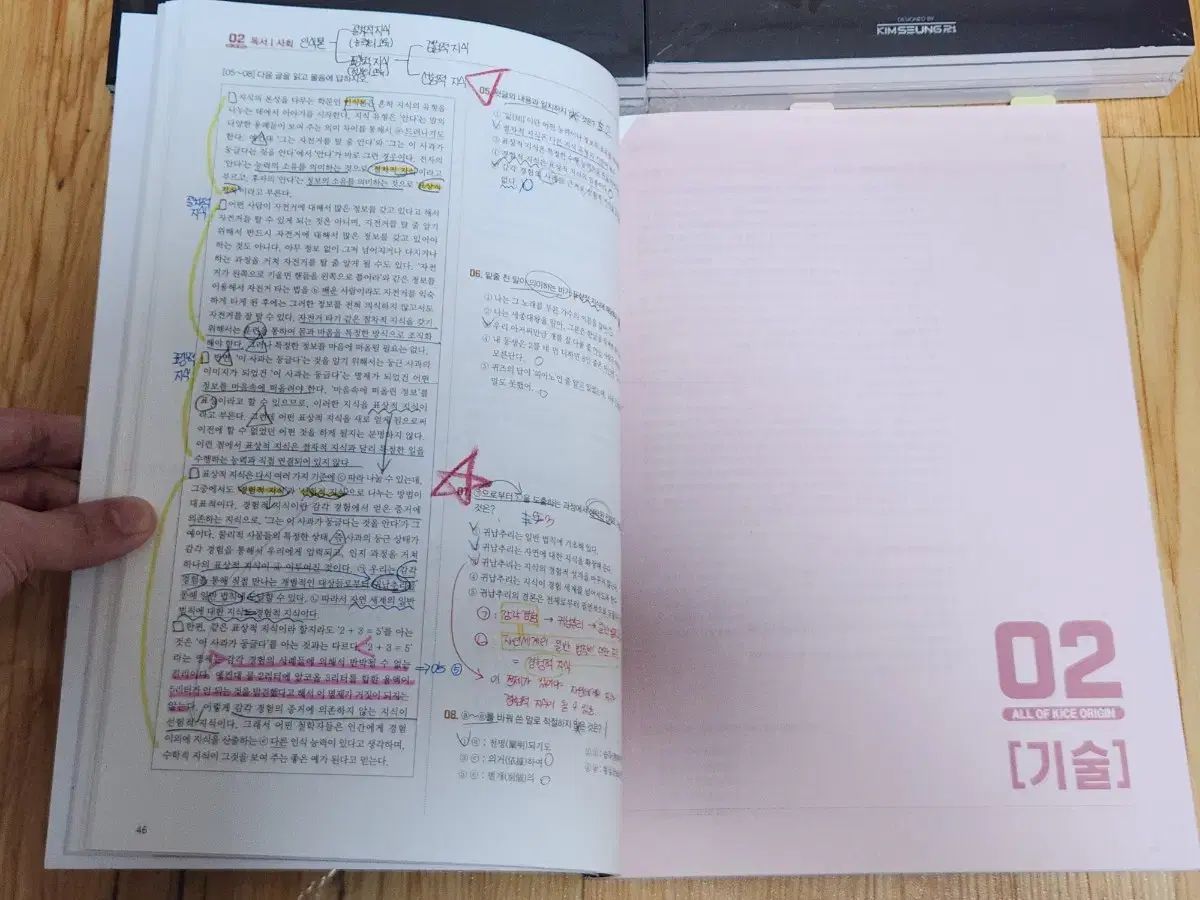 DESIGNED BY
KIMSEUNG21
02 독서 | 사회
인식론
절차적 지식
표상적 지식
경험적 지식
선험적 지식
[05~08] 다음 글을 읽고 물음에 답하시오.
지식의 본성을 다루는 학문인 인식론은 흔히 지식의 유형을
나누는 데에서 이야기를 시작한다. 지식 유형은 '안다'는 말의
다양한 용례들이 보여 주는 의미 차이를 통해서 ⓐ드러나기도
한다. 예컨대 '그는 자전거를 탈 줄 안다'와 '그는 이 사과가
둥글다는 것을 안다'에서 '안다'가 바로 그런 경우이다. 전자의
'안다'는 능력의 소유를 의미하는 것으로 '절차적 지식'이라고
부르고, 후자의 '안다'는 정보의 소유를 의미하는 것으로 '표상적
지식'이라고 부른다.
절차적
지식
어떤 사람이 자전거에 대해서 많은 정보를 갖고 있다고 해서
자전거를 탈 수 있게 되는 것은 아니며, 자전거를 탈 줄 알기
위해서 반드시 자전거에 대해서 많은 정보를 갖고 있어야
하는 것도 아니다. 아무 정보 없이 그저 넘어지거나 다치거나
하는 과정을 거쳐 자전거를 탈 줄 알게 될 수도 있다. '자전
거가 왼쪽으로 기울면 핸들을 왼쪽으로 틀어라'와 같은 정보를
이용해서 자전거 타는 법을 ⓑ배운 사람이라도 자전거를 익숙
하게 타게 된 후에는 그러한 정보를 전혀 의식하지 않고서도
자전거를 잘 탈 수 있다. 자전거 타기 같은 절차적 지식을 갖기
위해서는 훈련을 통하여 몸과 마음을 특정한 방식으로 조직화
해야 한다. 그러나 특정한 정보를 마음에 떠올릴 필요는 없다.
표상적
지식
반면, '이 사과는 둥글다'는 것을 알기 위해서는 둥근 사과의
이미지가 되었건 '이 사과는 둥글다'는 명제가 되었건 어떤
정보를 마음속에 떠올려야 한다. '마음속에 떠올린 정보'를
표상이라고 할 수 있으므로, 이러한 지식을 표상적 지식이
라고 부른다. 그런데 어떤 표상적 지식을 새로 얻게 됨으로써
이전에 할 수 없었던 어떤 것을 하게 될지는 분명하지 않다.
이런 점에서 표상적 지식은 절차적 지식과 달리 특정한 일을
수행하는 능력과 직접 연결되어 있지 않다.
표상적 지식은 다시 여러 가지 기준에 ⓒ따라 나눌 수 있는데,
그중에서도 '경험적 지식'과 '선험적 지식'으로 나누는 방법이
대표적이다. 경험적 지식이란 감각 경험에서 얻은 증거에
의존하는 지식으로, '그는 이 사과가 둥글다는 것을 안다'가 그
예이다. 물리적 사물들의 특정한 상태, 즉 사과의 둥근 상태가
감각 경험을 통해서 우리에게 입력되고, 인지 과정을 거쳐
하나의 표상적 지식이 ⓓ이루어진 것이다. ㉠우리는 감각
경험을 통해 직접 만나는 개별적인 대상들로부터 귀납추리를
통해 일반 법칙에 도달할 수 있다. ㉡따라서 자연 세계의 일반
법칙에 대한 지식도 경험적 지식이다.
한편, 같은 표상적 지식이라 할지라도 '2 + 3 = 5'를 아는
것은 '이 사과가 둥글다'를 아는 것과는 다르다. '2 + 3 = 5'
라는 명제는 감각 경험의 사례들에 의해서 반박될 수 없는
진리이다. 예컨대 물 2리터에 알코올 3리터를 합한 용액이
5리터가 안 되는 것을 발견했다고 해서 이 명제가 거짓이 되지는
않는다. 이렇게 감각 경험의 증거에 의존하지 않는 지식이
선험적 지식이다. 그래서 어떤 철학자들은 인간에게 경험
이외에 지식을 산출하는 ⓔ다른 인식 능력이 있다고 생각하며,
수학적 지식이 그것을 보여 주는 좋은 예가 된다고 믿는다.
46
05. 윗글의 내용과 일치하지 않는 것은?
② 절차적 지식은 다른 지식
③ 표상적 지식은 특정한 수행
없다.
06. 밑줄 친 말이 의미하는 바가
① 나는 그 노래를 부른 가수의 이름을
② 나는 세종대왕을 알아.
모른단다.
말도 못했어.
07. ㉠으로부터 ㉡을 도출하는 과정에서
것은?
① 귀납추리는 일반 법칙에 기초해 있다.
② 귀납추리는 자연에 대한 지식을 확장해 준다.
③ 귀납추리는 지식의 경험적 성격을 바꾸지 않는다.
④ 귀납추리는 지식이 경험 세계를
⑤ 귀납추리의 결론은 전제로부터 필연적으로
㉠: 감각 경험 → 귀납추리 →
= 경험적 지식
08. ⓐ~ⓔ를 바꿔 쓴 말로 적절하지 않은 것은?
① ⓐ: 천명(闡明)되기도
③ ⓒ: 의거(依據)하여
⑤ ⓔ: 별개(別個)의
02
ALL OF KICE ORIGIN
[기술]